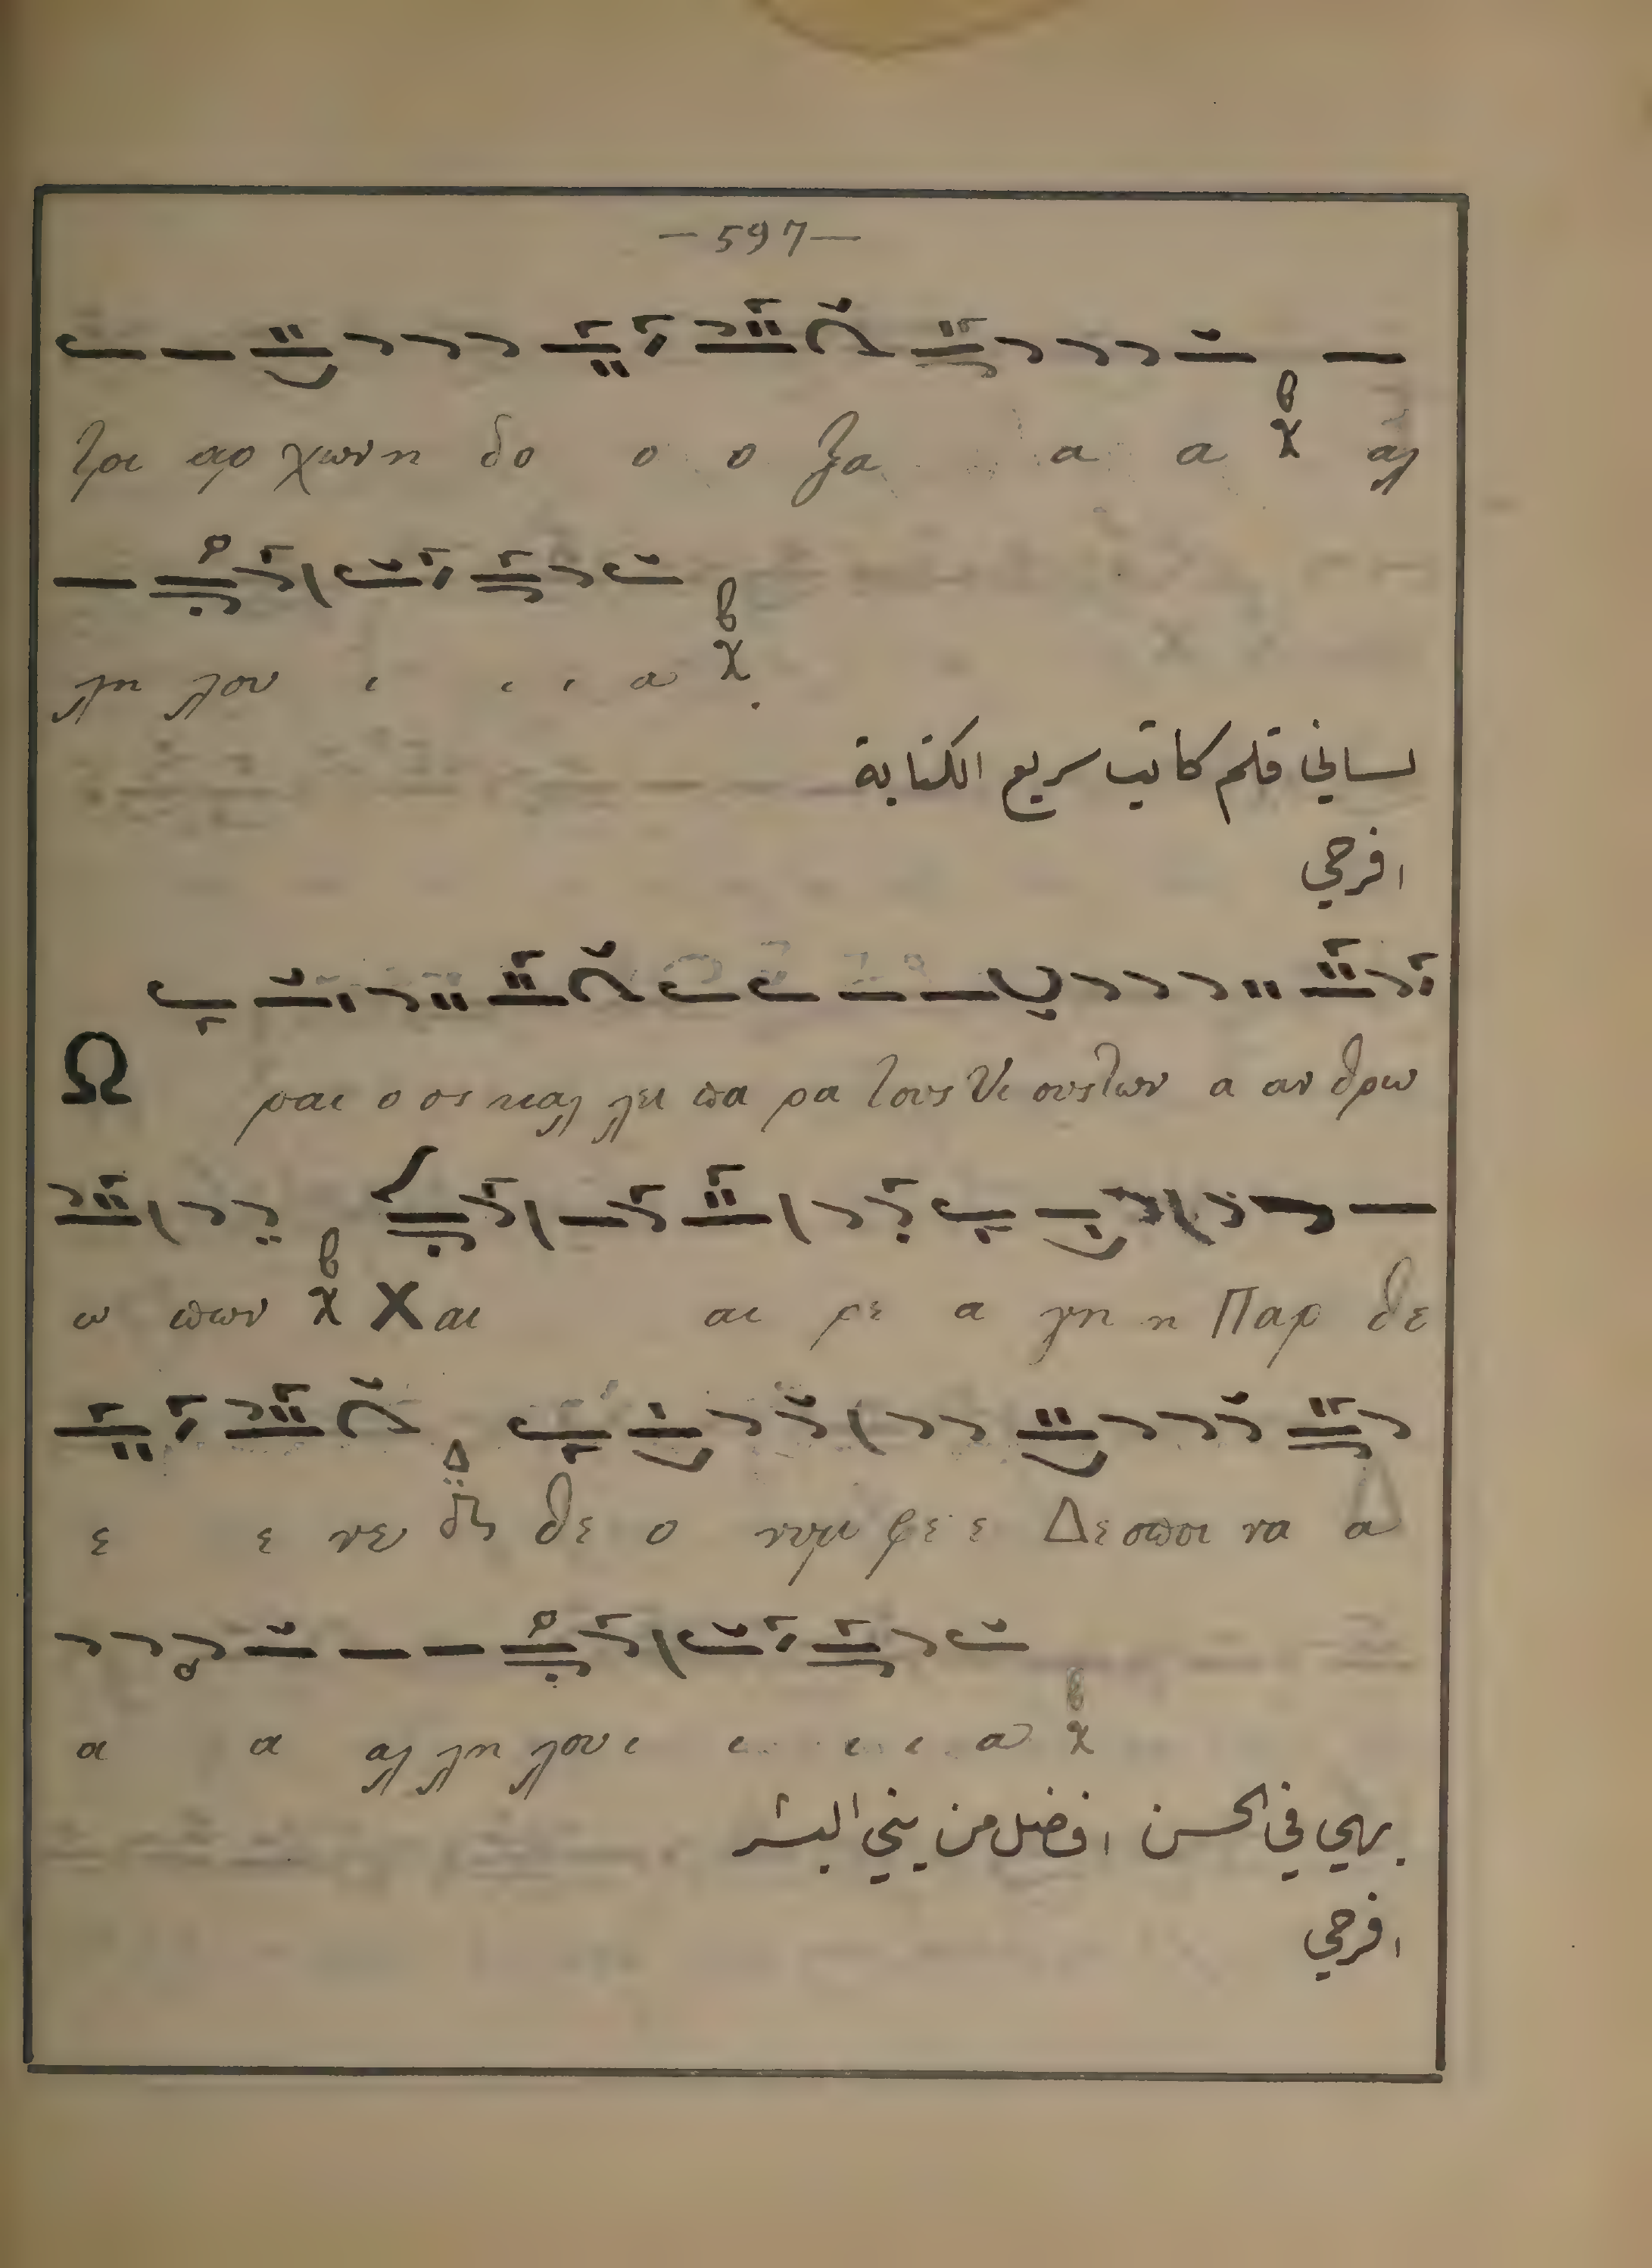 — 597 —
τρι αρ χων η δο ο ο ξα α α χ αλ
λη λου ι ι ι α χ
لساني قلم كاتب سريع الكتابة
افرحي
Ω ραι ο ος καλ λει πα ρα τους Υι ους των α αν θρω
ω πων χ Χαι αι ρε α γη η Παρ θε
ε ε νε δι θε ο νυμ φε ε Δε σποι να α
α α αλ λη λου ι ι ι ι α χ
بهي في الحسن افضل من بني البشر
افرحي